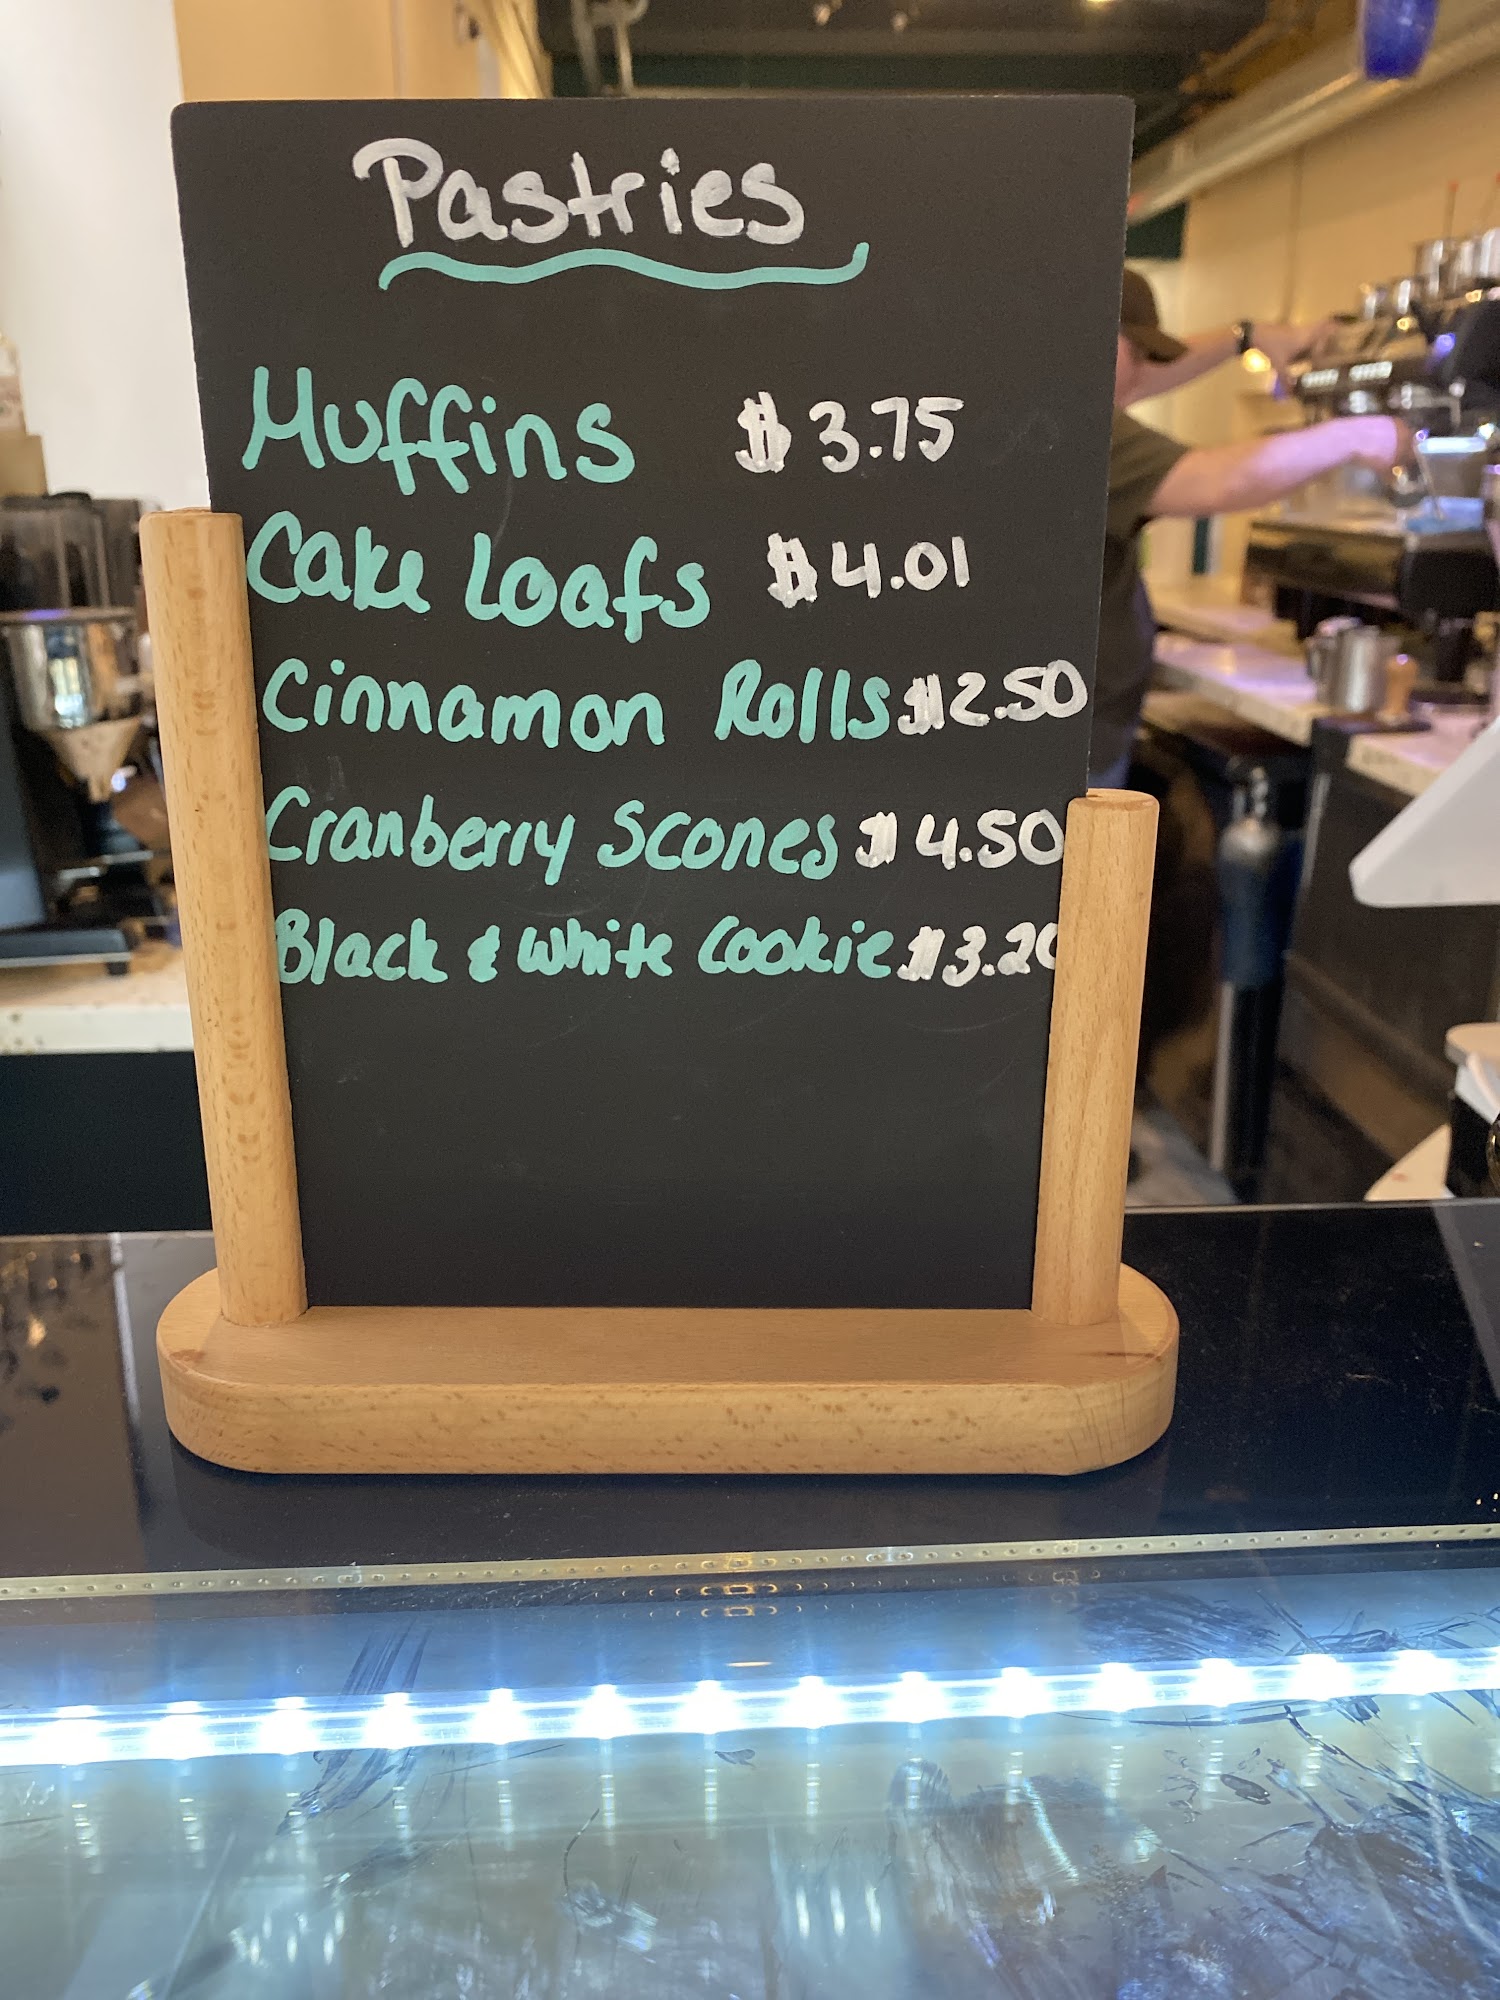 Pastries
Muffins $3.75
Cake Loafs $4.01
Cinnamon Rolls $2.50
Cranberry Scones $4.50
Black & White Cookie $3.20